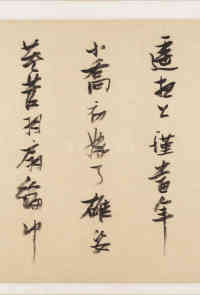 遙想公瑾當年
小喬初嫁了雄姿
英發羽扇綸巾